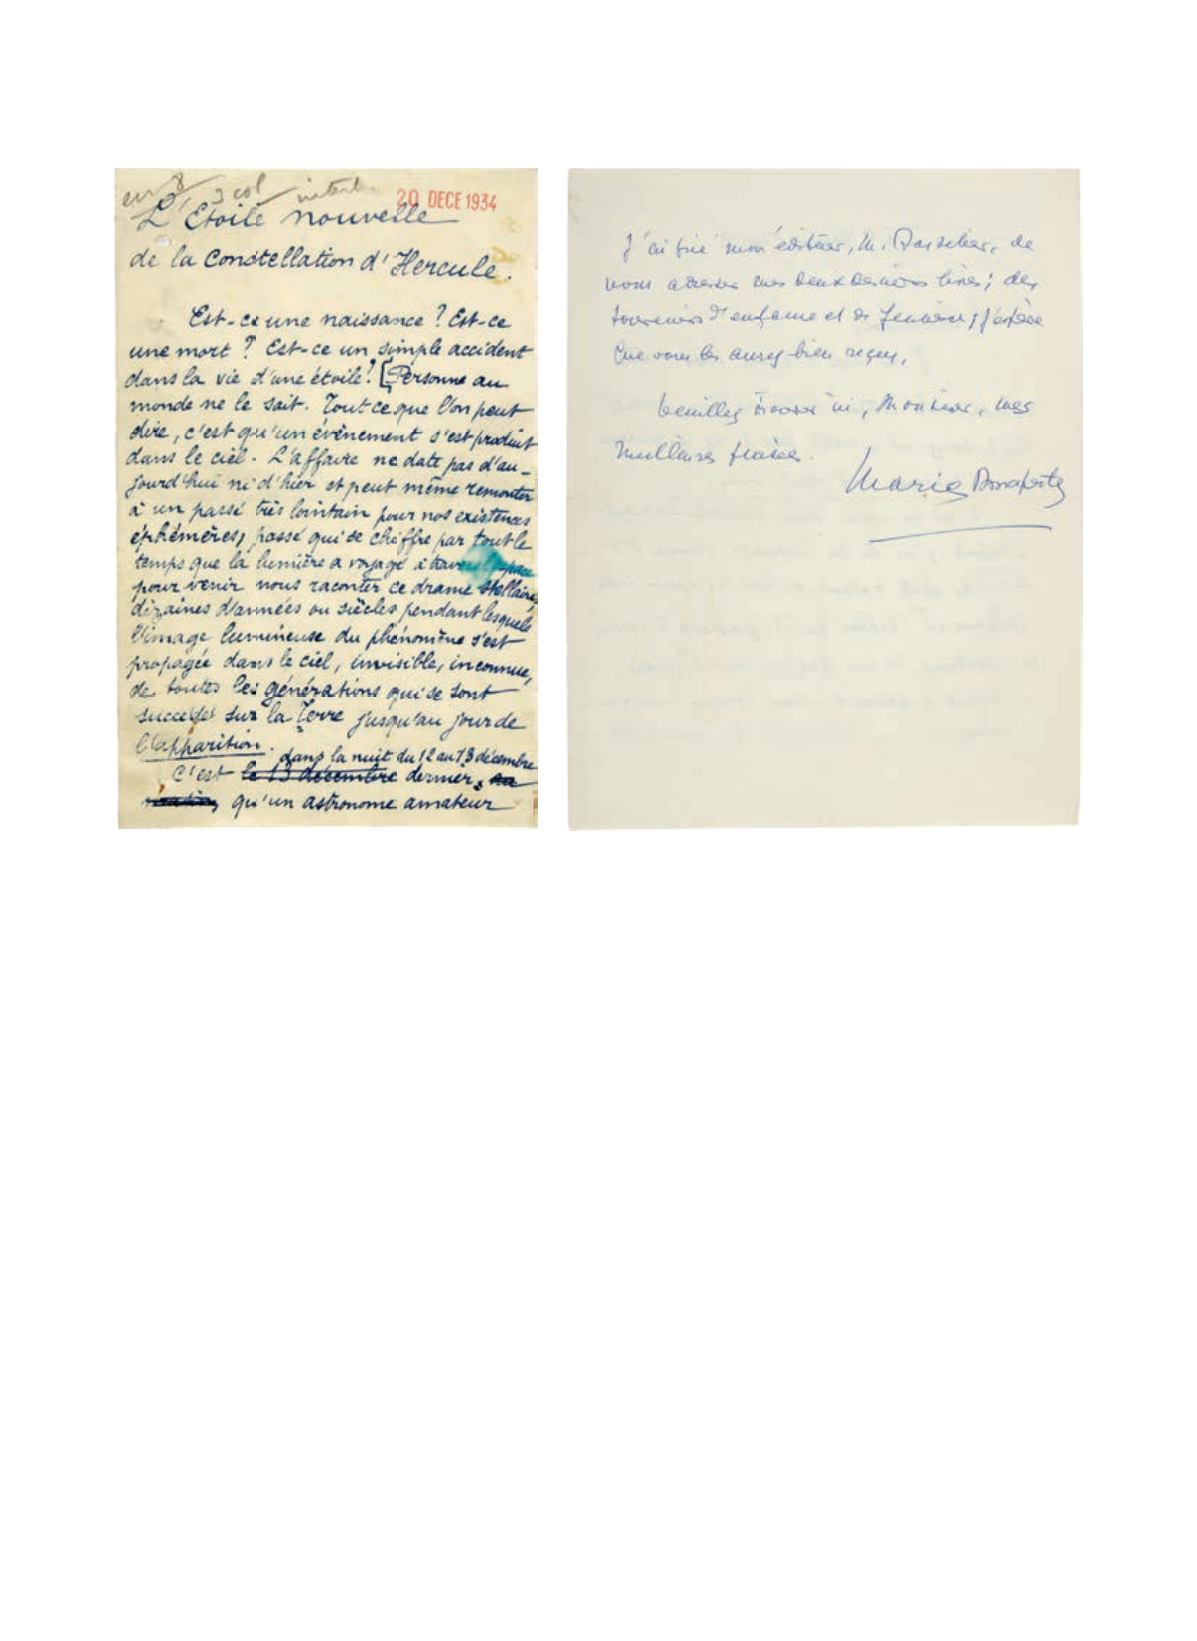 en 8 3 col
20 DECE 1934
L'Etoile nouvelle
de la Constellation d'Hercule.
Est-ce une naissance ? Est-ce
une mort ? Est-ce un simple accident
dans la vie d'une étoile ? [Personne au
monde ne le sait. Tout ce que l'on peut
dire, c'est qu'un évènement s'est produit
dans le ciel. L'affaire ne date pas d'au-
jourd'hui ni d'hier et peut même remonter
à un passé très lointain pour nos existences
éphémères, passé qui se chiffre par tout le
temps que la lumière a voyagé à travers l'espace
pour venir nous raconter ce drame stellaire,
dizaines d'années ou siècles pendant lesquels
l'image lumineuse du phénomène s'est
propagée dans le ciel, invisible, inconnue,
de toutes les générations qui se sont
succédés sur la Terre jusqu'au jour de
l'apparition.
dans la nuit du 12 au 13 décembre
C'est le 13 décembre dernier,
qu'un astronome amateur
J'ai prié mon éditeur, M. de
vous adresser mes deux derniers livres; des
souvenirs d'enfance et de jeunesse, j'espère
que vous les aurez bien reçus.
Veuillez trouver ici, Monsieur, mes
meilleures pensées.
Marie Bonaparte